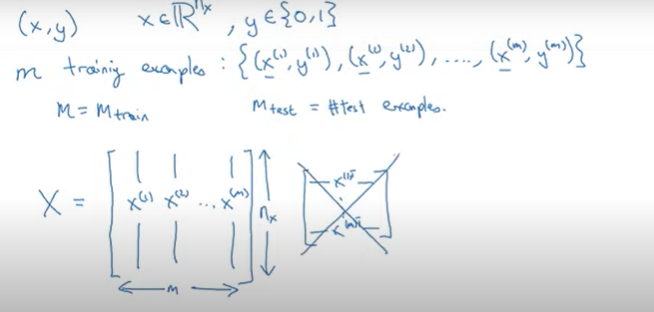 (x,y) x∈ℝⁿˣ, y∈{0,1}
m trainiy examples : {(x⁽¹⁾,y⁽¹⁾), (x⁽²⁾,y⁽²⁾), ...., (x⁽ᵐ⁾,y⁽ᵐ⁾)}
M = M train M test = #test examples.
X = [ x⁽¹⁾ x⁽²⁾ ... x⁽ᵐ⁾ ] nₓ
x⁽¹⁾ᵀ
x⁽ᵐ⁾ᵀ
m